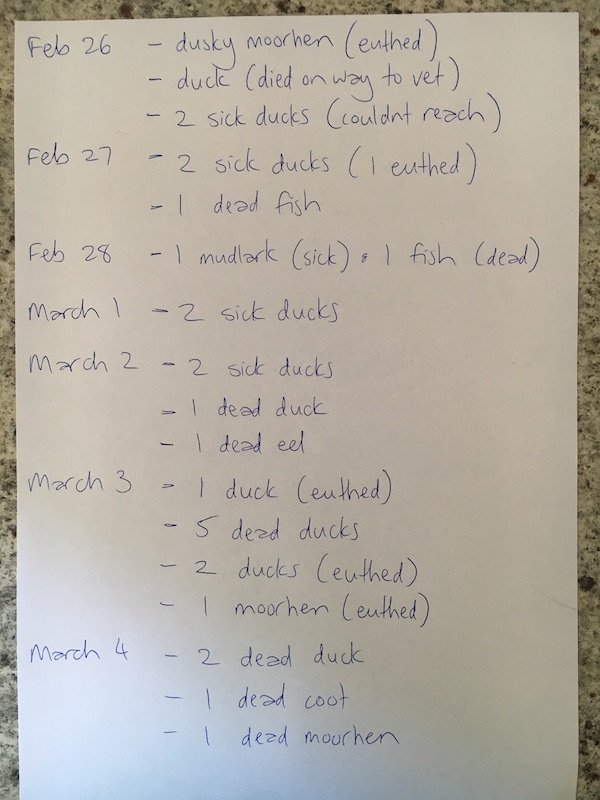 Feb 26 - dusky moorhen (euthed)
- duck (died on way to vet)
- 2 sick ducks (couldnt reach)
Feb 27 - 2 sick ducks (1 euthed)
- 1 dead fish
Feb 28 - 1 mudlark (sick) & 1 fish (dead)
March 1 - 2 sick ducks
March 2 - 2 sick ducks
- 1 dead duck
- 1 dead eel
March 3 - 1 duck (euthed)
- 5 dead ducks
- 2 ducks (euthed)
- 1 moorhen (euthed)
March 4 - 2 dead duck
- 1 dead coot
- 1 dead moorhen